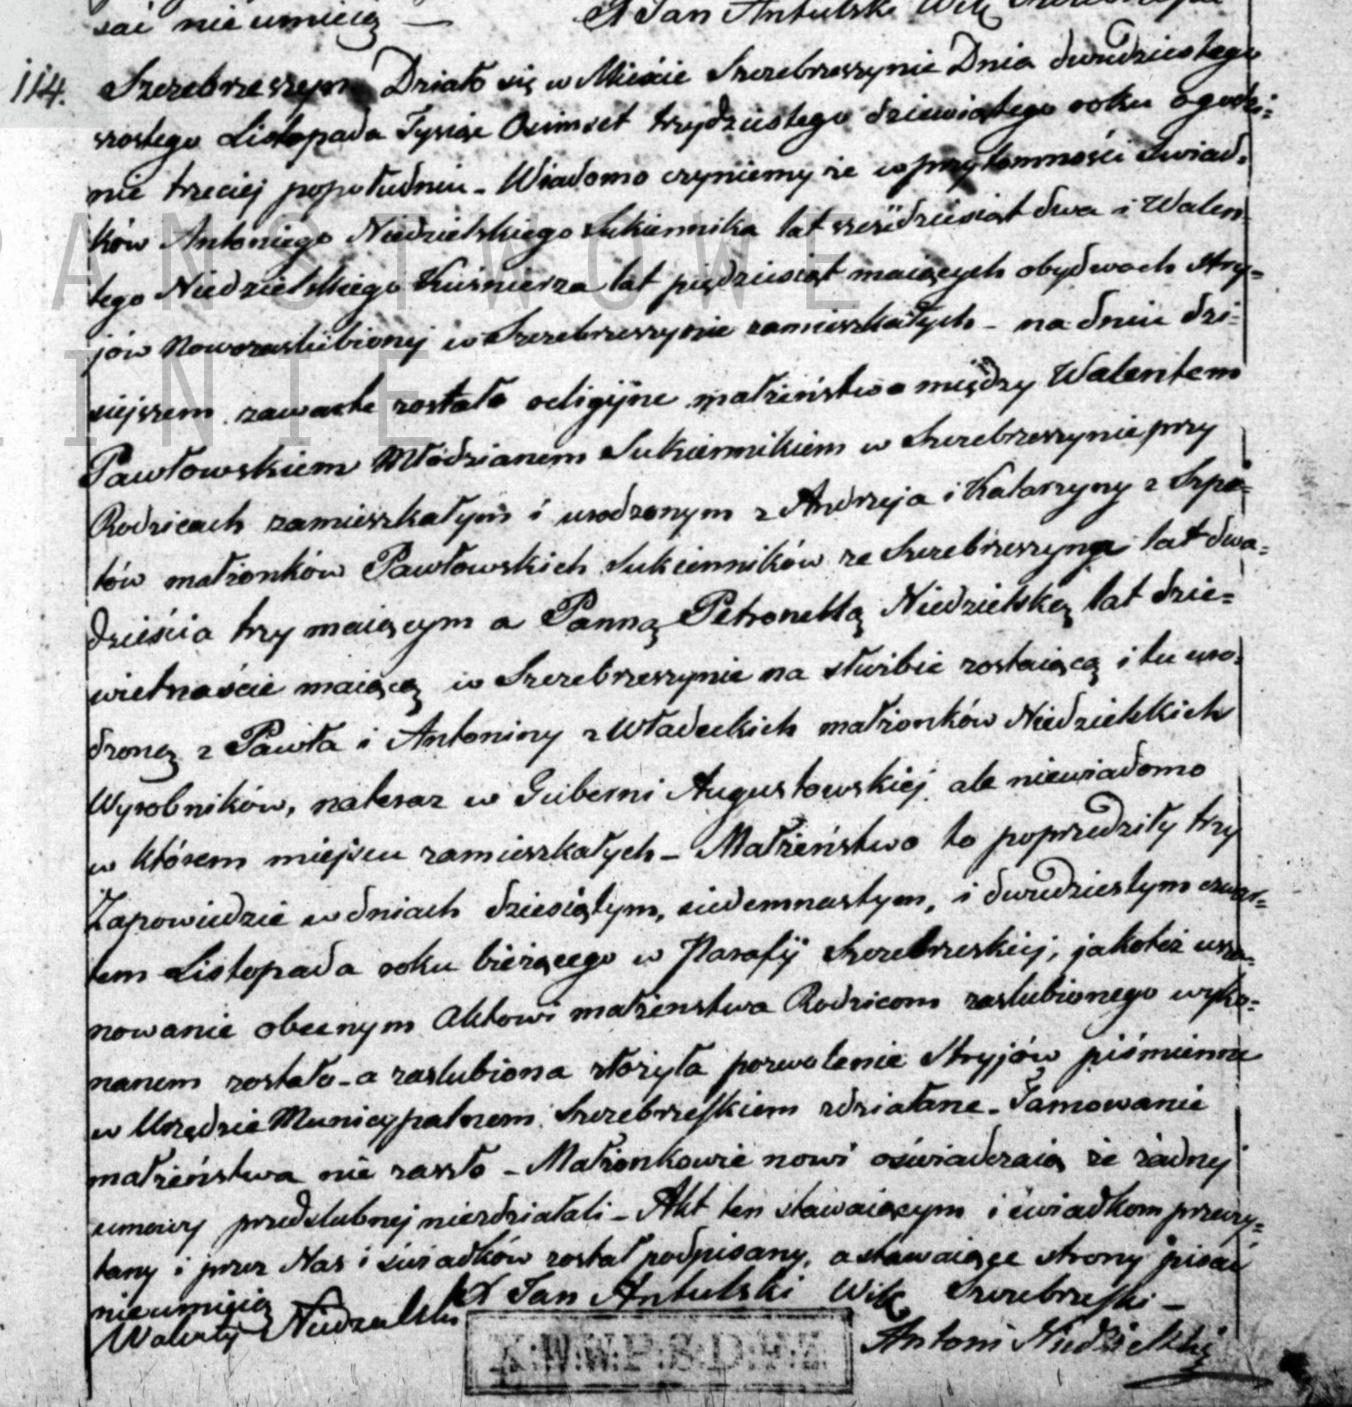 sać nie umieią — X Jan Antulski Wik
114. Szczebrzeszyn Działo się w Mieście Szczebrzeszynie Dnia dwudziestego
szostego Listopada Tysiąc Osimset trzydziestego dziewiątego roku o godzi-
nie trzeciej popołudniu – Wiadomo czyniemy że w przytomności świad-
ków Antoniego Niedzielskiego Sukiennika lat sześdziesiąt dwa i Walen-
tego Niedzielskiego Kuśnierza lat piędziesiąt maiących obydwóch Stry-
jów Nowozaslubionej w Szczebrzeszynie zamieszkałych – na dniu dzi-
siejszem zawarte zostało religijne małżeństwo między Walentem
Pawłowskiem Młodzianem Sukiennikiem w Szczebrzeszynie przy
Rodzicach zamieszkałym i urodzonym z Andrzeja i Katarzyny z Szpo-
tów małżonków Pawłowskich Sukienników ze Szczebrzeszyna lat dwa-
dzieścia trzy maiącym a Panną Petronellą Niedzielską lat dzie-
wietnaście maiącą w Szczebrzeszynie na służbie zostaiącą i tu uro-
dzoną z Pawła i Antoniny z Władeckich małżonków Niedzielskich
Wyrobników, nateraz w Guberni Augustowskiej ale niewiadomo
w którem miejscu zamieszkałych – Małżeństwo to poprzedziły trzy
Zapowiedzie w dniach dziesiątym, siedemnastym, i dwudziestym czwar-
tem Listopada roku bieżącego w Parafij Szczebrzeskiej, jakoteż usza-
nowanie obecnym Aktowi małżenstwa Rodzicom zaslubionego wyko-
nanem zostało – a zaslubiona złożyła pozwolenie Stryjów piśmienne
w Urzędzie Municypalnem Szczebrzeskiem zdziałane – Tamowanie
małżeństwa nie zaszło – Małżonkowie nowi oświadczaią że żadnej
umowy przedslubnej niezdziałali – Akt ten stawaiącym i świadkom przeczy-
tany i przez Nas i świadków został podpisany, a stawaiące strony pisać
nieumieią X Jan Antulski Wik Szczebrzeski –
Walenty Niedzielski
Antoni Niedzielski
X:W:W:P:S:D:F:Z
ANSTWOWE
INIE